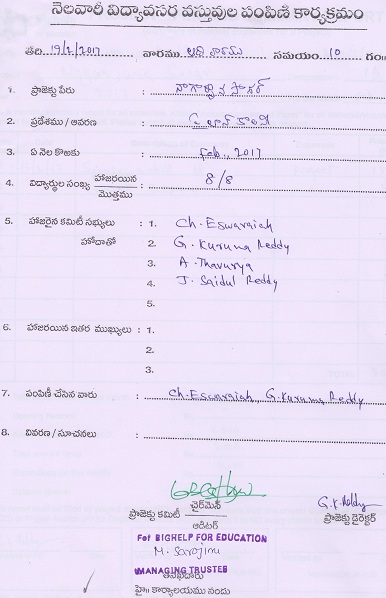 నెలవారీ విద్యావసర వస్తువుల పంపిణి కార్యక్రమం
తేది 19/2/2017 వారము ఆది వారము సమయం 10 గం॥
1. ప్రాజెక్టు పేరు : నాగార్జున సాగర్
2. ప్రదేశము / ఆవరణ : పైలాన్ కాలనీ
3. ఏ నెల కొఱకు : Feb., 2017
4. విద్యార్థుల సంఖ్య హాజరయిన / మొత్తము : 8/8
5. హాజరైన కమిటీ సభ్యులు : 1. Ch. Eswaraiah
హోదాతో 2. G. Kuruma Reddy
3. A. Thavurya
4. J. Saidul Reddy
5.
6. హాజరయిన ఇతర ముఖ్యులు : 1.
2.
3.
7. పంపిణీ చేసిన వారు : Ch. Eswaraiah, G. Kuruma Reddy
8. వివరణ / సూచనలు :
G.K. Reddy
ప్రాజెక్టు కమిటీ చైర్‌మెన్ / ఆడిటర్ ప్రాజెక్టు డైరెక్టర్
For BIGHELP FOR EDUCATION
M. Sarojini
MANAGING TRUSTEE
హై॥ కార్యాలయము నందు